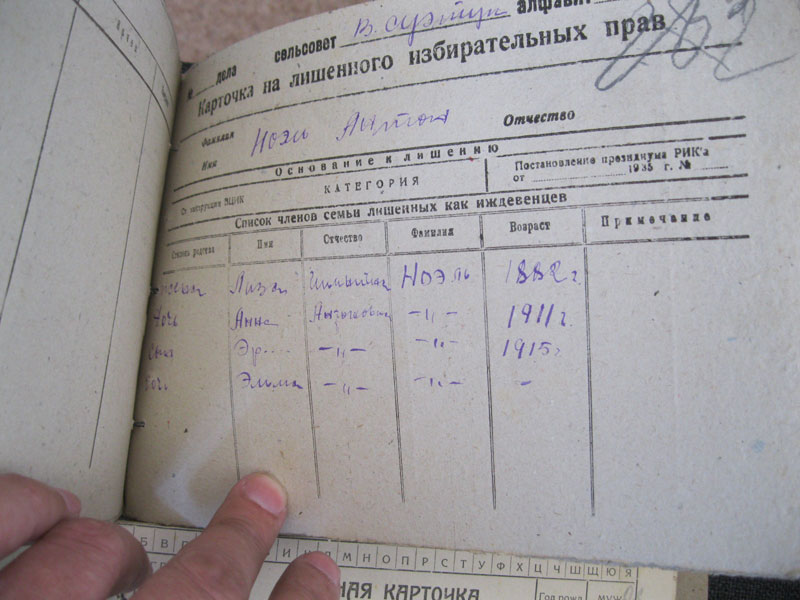 № дела сельсовет В. Суэтук алфавит
Карточка на лишенного избирательных прав
Фамилия
Имя
Ноэль
Отчество
Основание к лишению
От инструкции ВЦИК КАТЕГОРИЯ
Постановление президиума РИК'а
от 1935 г. №
Список членов семьи лишенных как иждевенцев
Степень родства Имя Отчество Фамилия Возраст Примечание
Лиза Ноэль 1882 г.
дочь Анна —„— 1911 г.
сын —„— —„— 1915 г.
дочь Эльма —„— —„— -
Б В И К Л М Н О П Р С Т У Ф Х Ц Ч Ш Щ Ю Я
НАЯ КАРТОЧКА
Год рожд. МУЖ